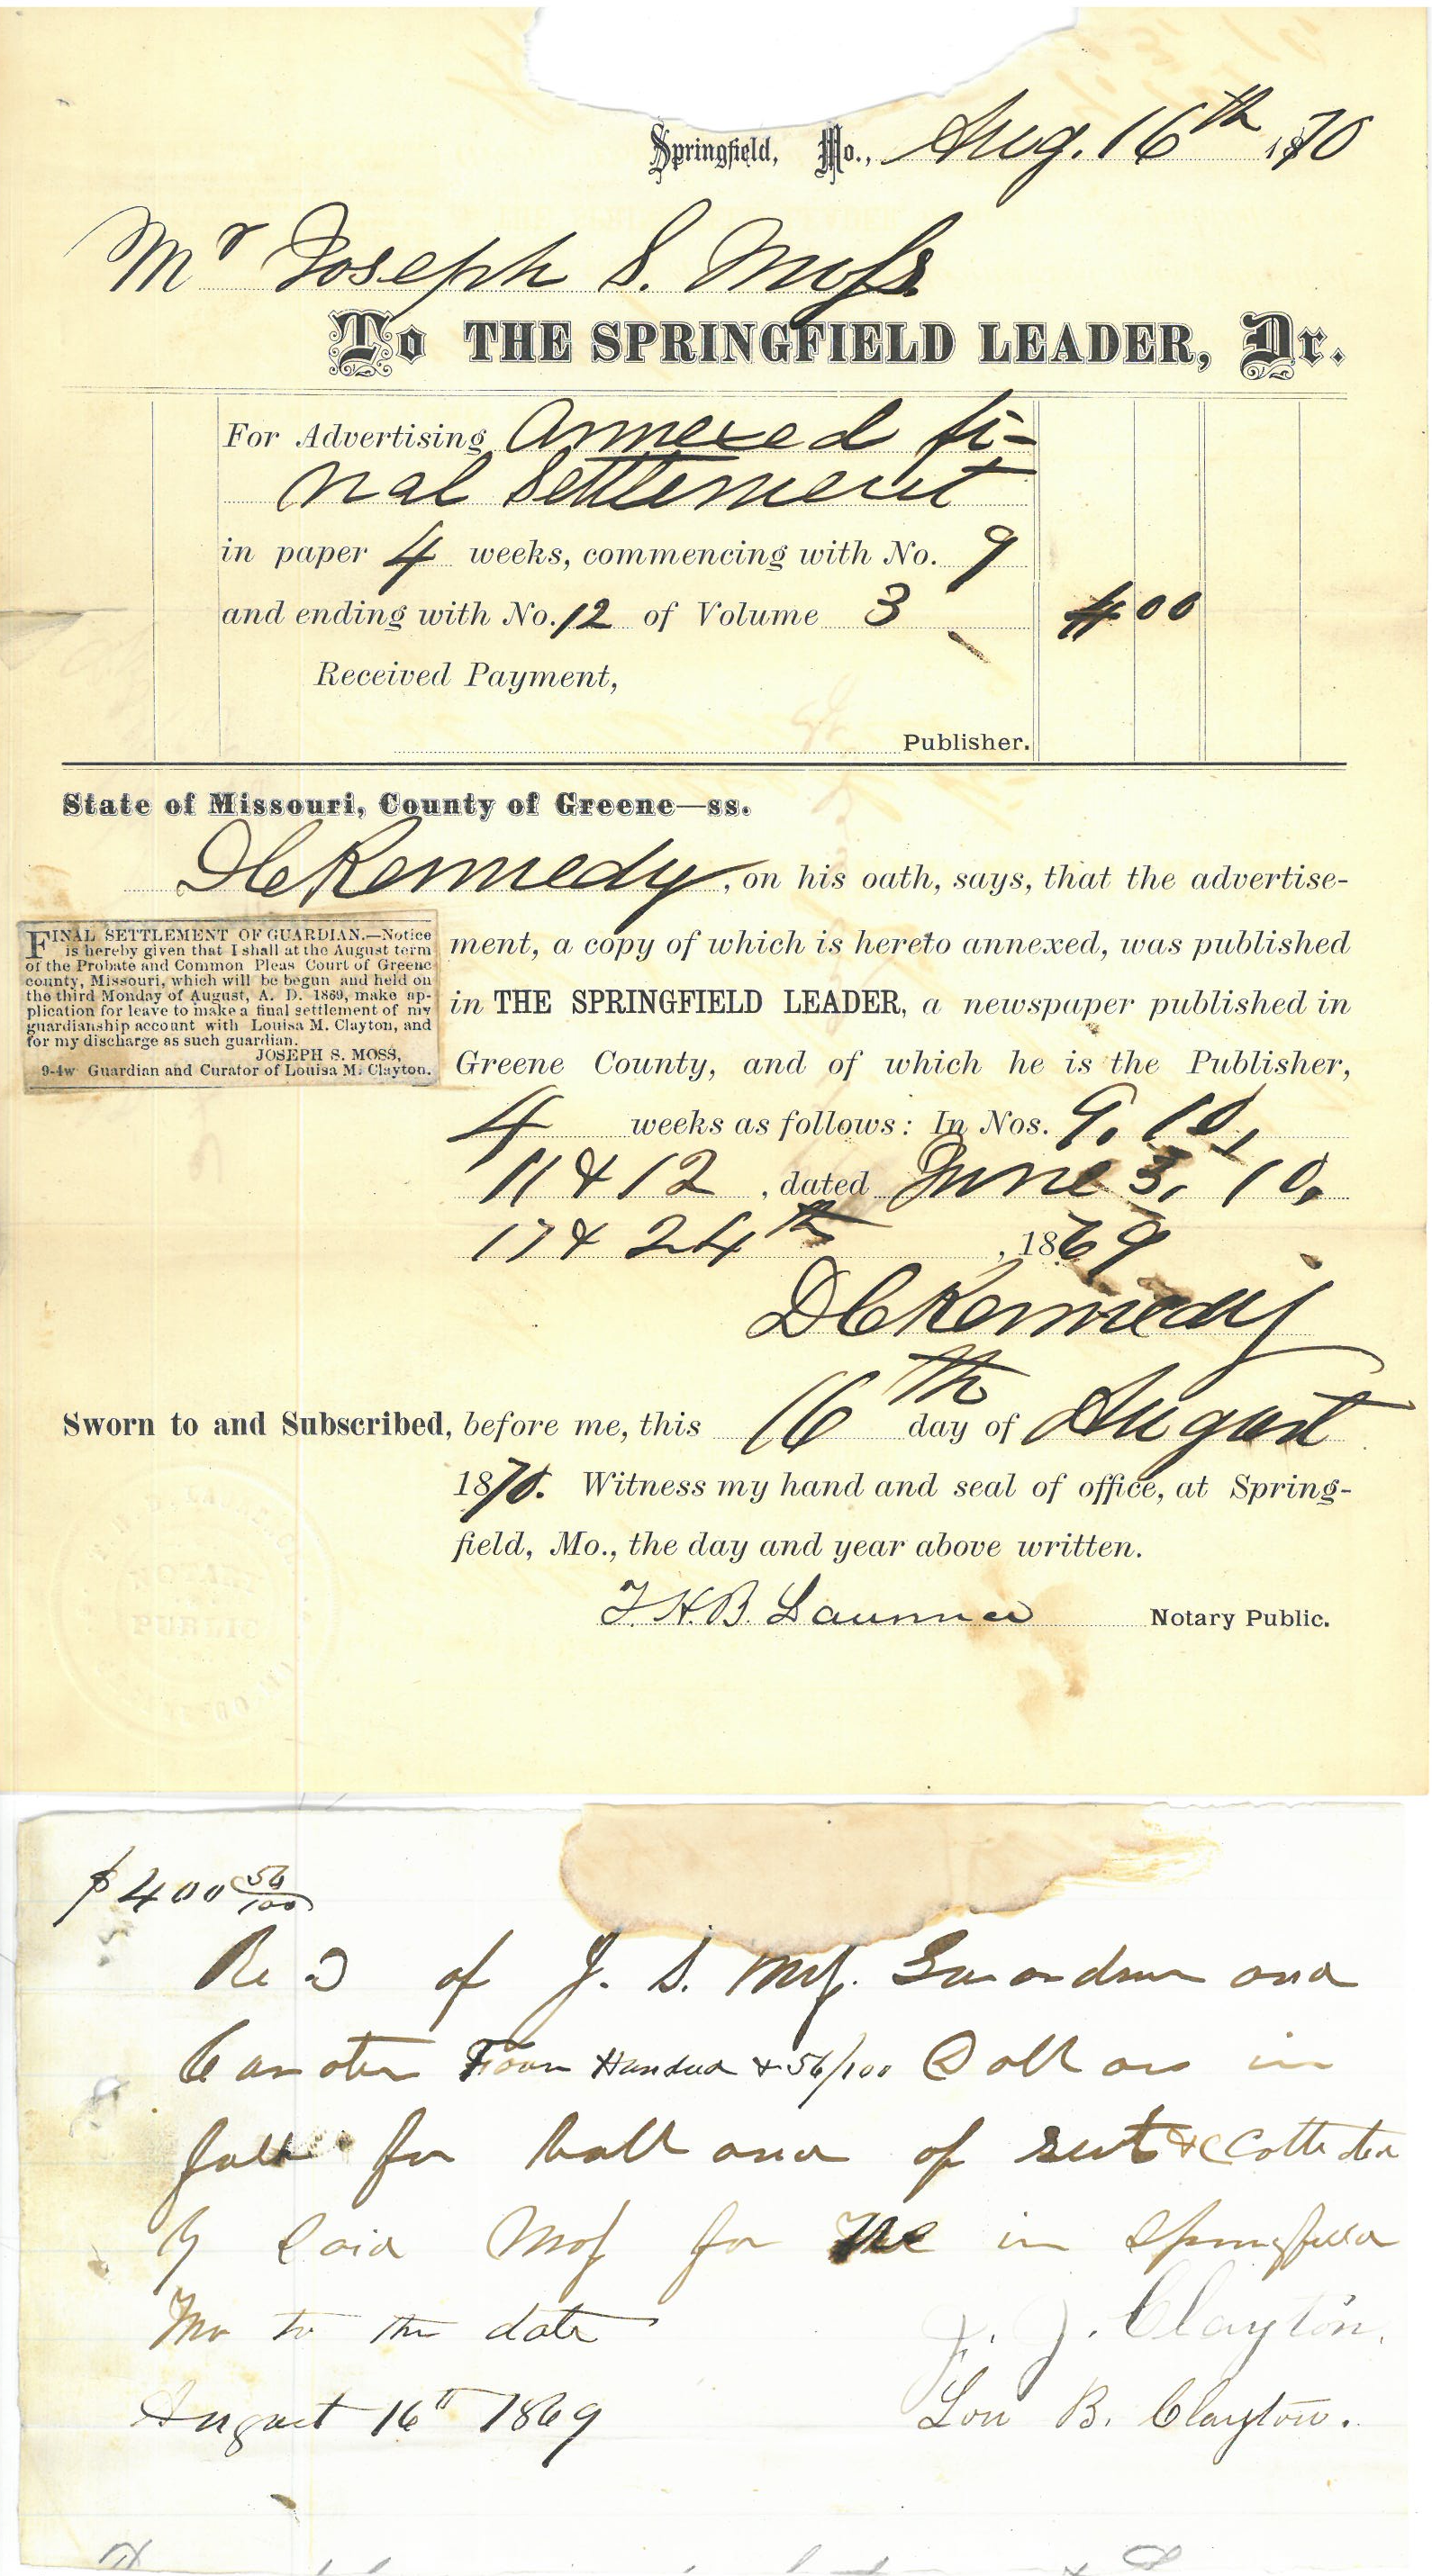 Springfield, Mo., Aug. 16th 1870
Mr Joseph S. Moss.
To THE SPRINGFIELD LEADER, Dr.
For Advertising Annexed fi-
nal Settlement
in paper 4 weeks, commencing with No. 9
and ending with No. 12 of Volume 3 4 00
Received Payment,
Publisher.
State of Missouri, County of Greene—ss.
D C Kennedy, on his oath, says, that the advertise-
ment, a copy of which is hereto annexed, was published
in THE SPRINGFIELD LEADER, a newspaper published in
Greene County, and of which he is the Publisher,
4 weeks as follows: In Nos. 9, 10,
11 & 12, dated June 3, 10,
17 & 24th, 1869
D C Kennedy
FINAL SETTLEMENT OF GUARDIAN.—Notice
is hereby given that I shall at the August term
of the Probate and Common Pleas Court of Greene
county, Missouri, which will be begun and held on
the third Monday of August, A. D. 1869, make ap-
plication for leave to make a final settlement of my
guardianship account with Louisa M. Clayton, and
for my discharge as such guardian.
JOSEPH S. MOSS,
9-4w Guardian and Curator of Louisa M. Clayton.
Sworn to and Subscribed, before me, this 16th day of August
1870. Witness my hand and seal of office, at Spring-
field, Mo., the day and year above written.
Notary Public.
$400 56/100
Recd of J. S. Moss. Guardian and
Curator Four Hundred & 56/100 Dollars in
full for ballance of rent &c Collected
by Said Moss for me in Springfield
Mo to this date
August 16th 1869
J. J. Clayton.
Lou B. Clayton.